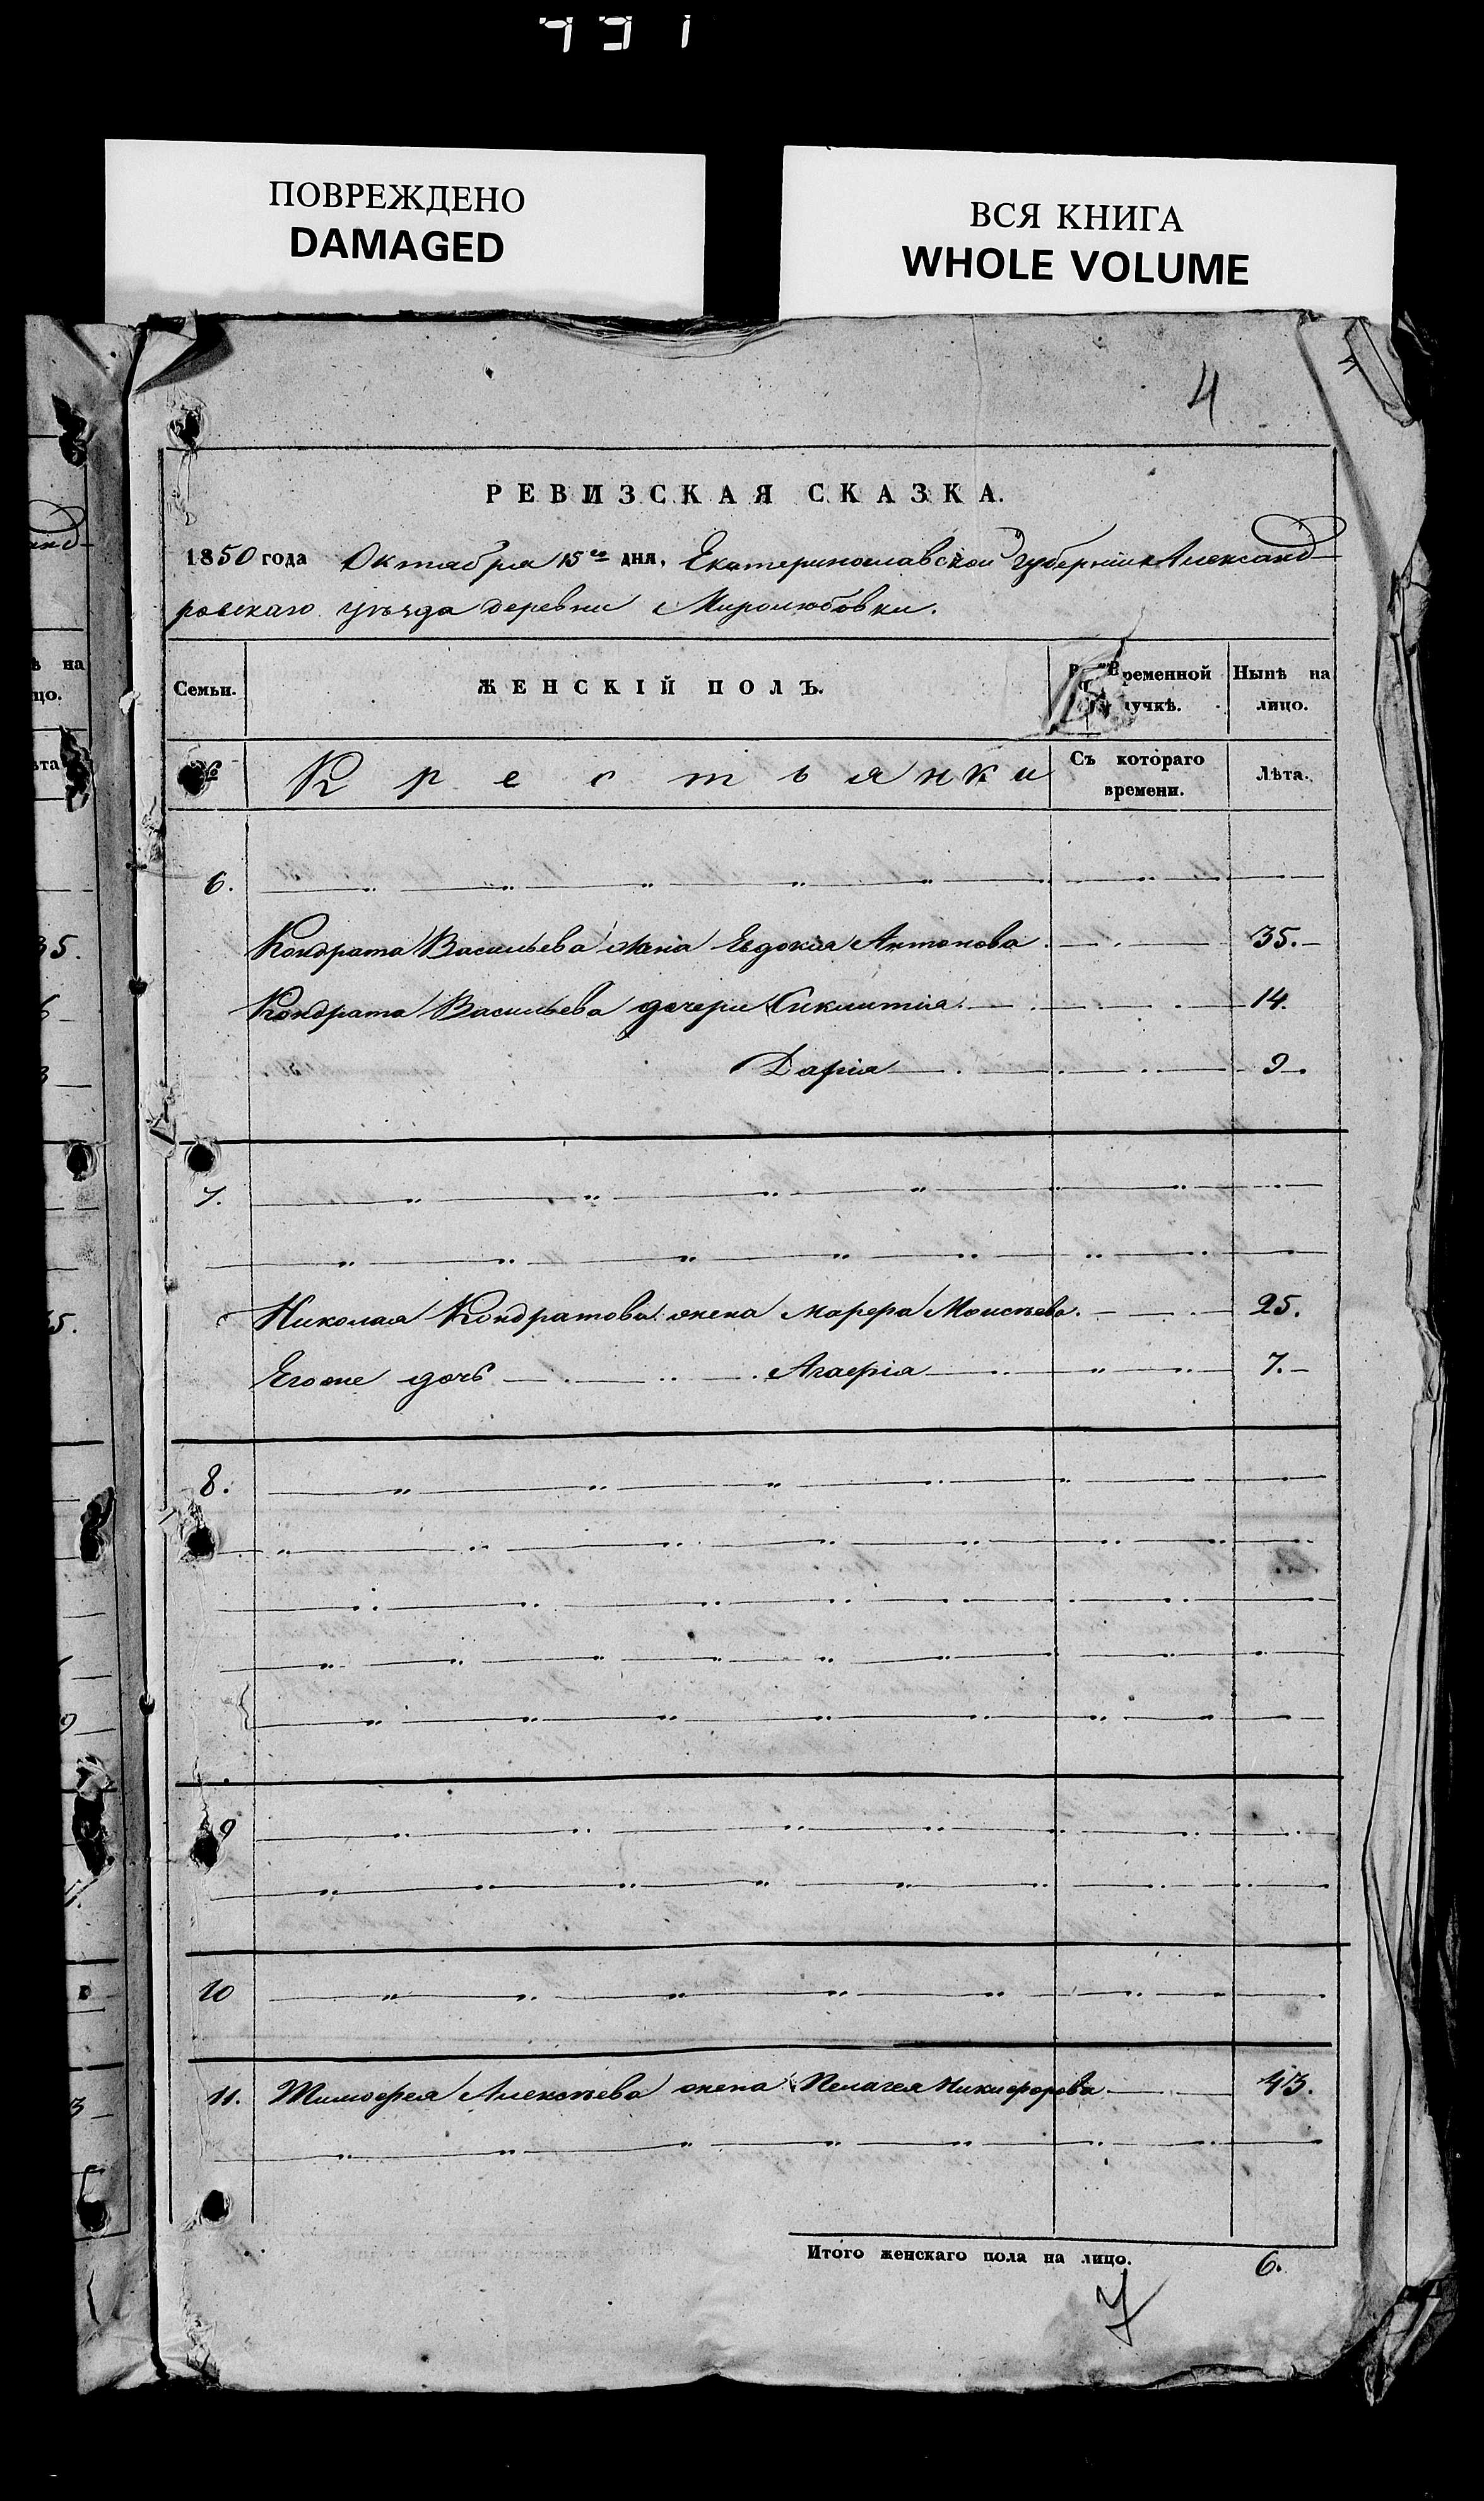 ПОВРЕЖДЕНО
DAMAGED
ВСЯ КНИГА
WHOLE VOLUME
4
РЕВИЗСКАЯ СКАЗКА.
1850 года Октября 15го дня, Екатеринославской Губернии Александ-
ровскаго уѣзда деревни Миролюбовки.
Семьи. ЖЕНСКІЙ ПОЛЪ. Временной Нынѣ на
лучкѣ. лицо.
№ Крестьянки Съ котораго Лѣта.
времени.
6.
Кондрата Васильева жена Евдокія Антонова 35.
Кондрата Васильева дочери 14.
Дарія 9.
7.
Николая Кондратова жена Марфа Моисѣева. 25.
Егоже дочь Агафія 7.
8.
9
10
11. Тимофея Алексѣева жена Пелагея Никифорова 43.
Итого женскаго пола на лицо. 6.
7